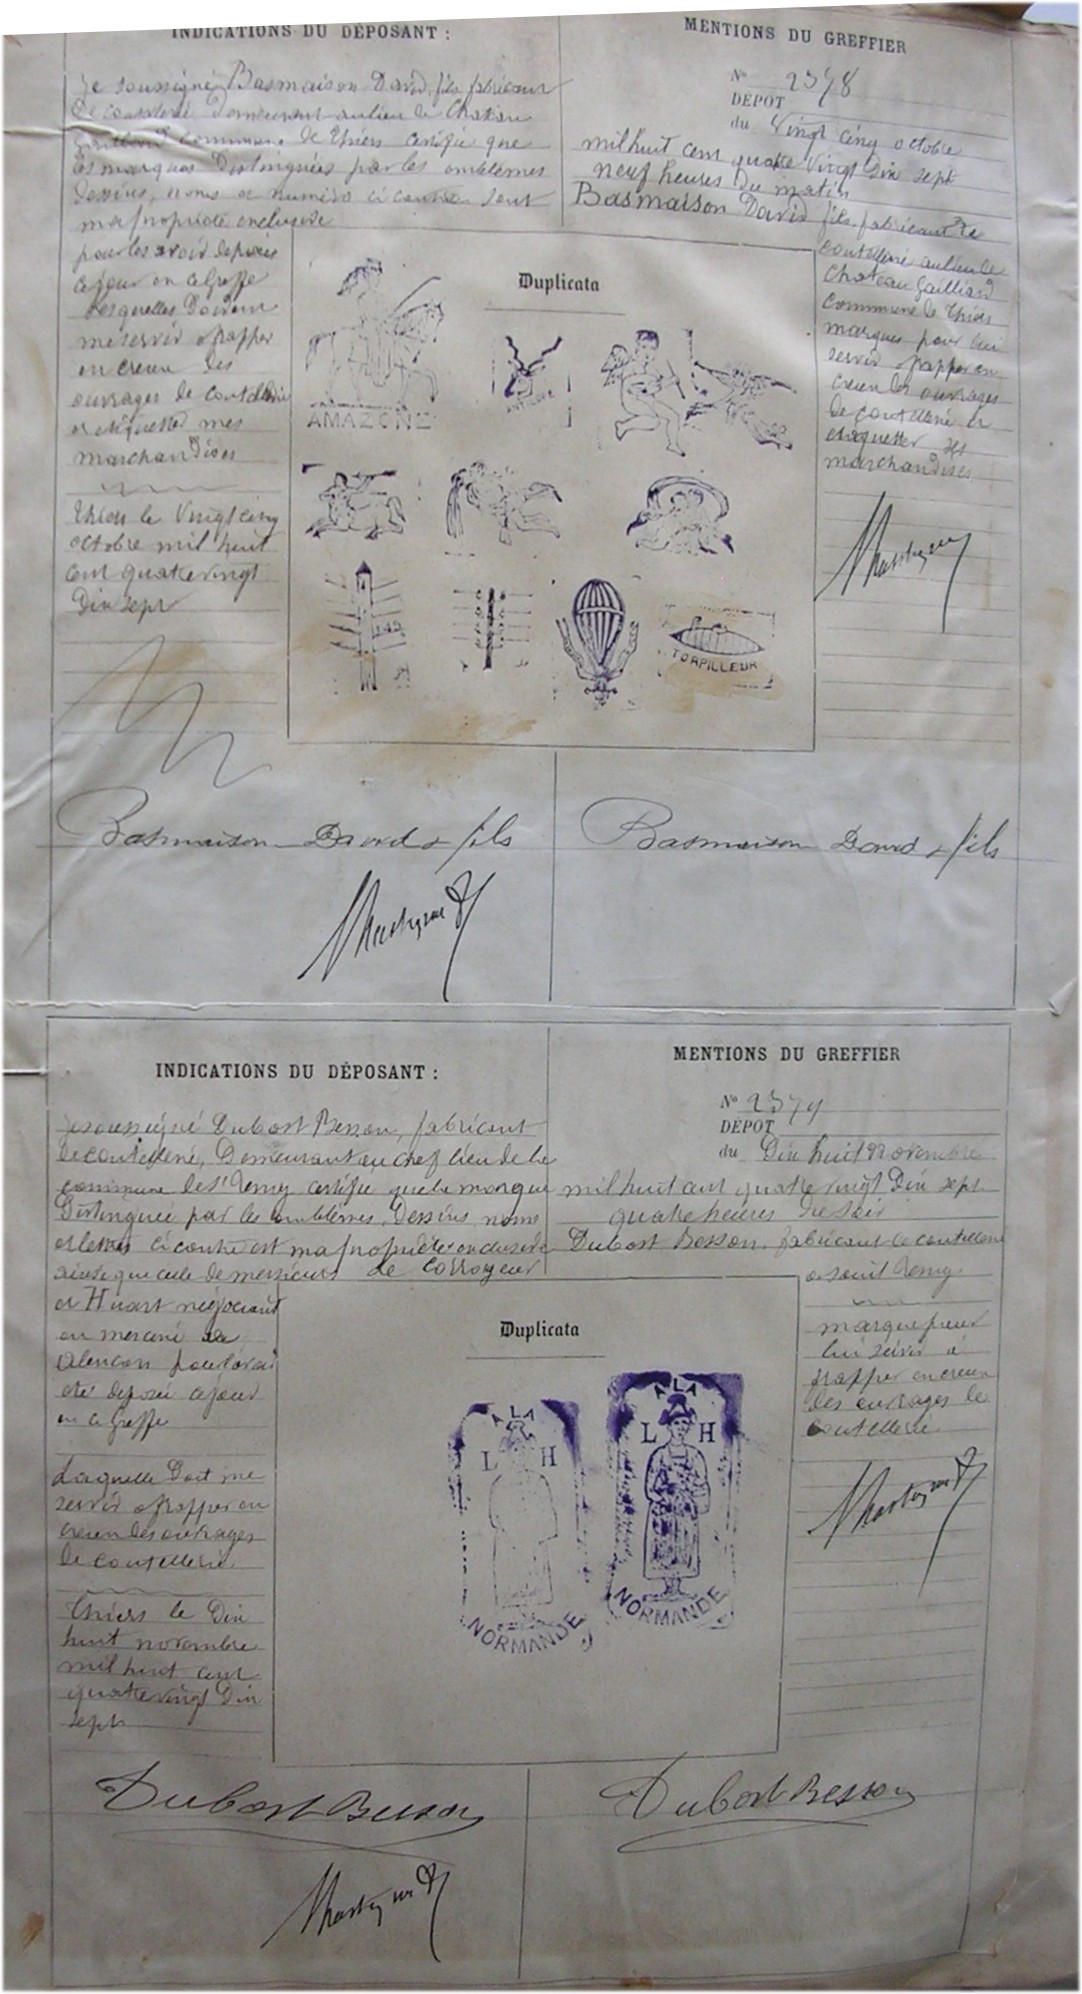 INDICATIONS DU DÉPOSANT :
Je soussigné Basmaison David fils fabricant
de coutellerie demeurant au lieu de Chateau
gaillard commune de Thiers certifie que
les marques distinguées par les emblêmes
dessins, noms et numéro ci contre sont
ma propriété exclusive
pour les avoir déposées
ce jour en ce Greffe
lesquelles doivent
me servir à frapper
en creux les
ouvrages de coutellerie
et étiquetter mes
marchandises
Thiers le vingt cinq
octobre mil huit
cent quatre vingt
dix sept
MENTIONS DU GREFFIER
N° 2378
DÉPOT
du vingt cinq octobre
mil huit cent quatre vingt dix sept
neuf heures du matin
Basmaison David fils fabricant de
coutellerie au lieu de
Chateau Gaillard
commune de Thiers
marques pour lui
servir à frapper en
creux les ouvrages
de coutellerie et
étiquetter ses
marchandises
Duplicata
AMAZONE
ANTILOPE
TORPILLEUR
Basmaison David & fils
Basmaison David & fils
INDICATIONS DU DÉPOSANT :
Je soussigné Dubost Besson, fabricant
de coutellerie, demeurant au chef lieu de la
commune de St Remy certifie que la marque
distinguée par les emblêmes, dessins, noms
et lettres ci contre est ma propriété exclusive
ainsi que celle de messieurs Le Corroyeur
et Huart négociant
en mercerie à
Alençon pour avoir
été déposée ce jour
en ce greffe
Laquelle doit me
servir à frapper en
creux les ouvrages
de coutellerie
Thiers le dix
huit novembre
mil huit cent
quatre vingt dix
sept
MENTIONS DU GREFFIER
N° 2379
DÉPOT
du Dix huit novembre
mil huit cent quatre vingt dix sept
quatre heures du soir
Dubost Besson, fabricant de coutellerie
à Saint Remy
marque pour
lui servir à
frapper en creux
les ouvrages de
coutellerie
Duplicata
A LA
L H
NORMANDE
A LA
L H
NORMANDE
Dubost Besson
Dubost Besson